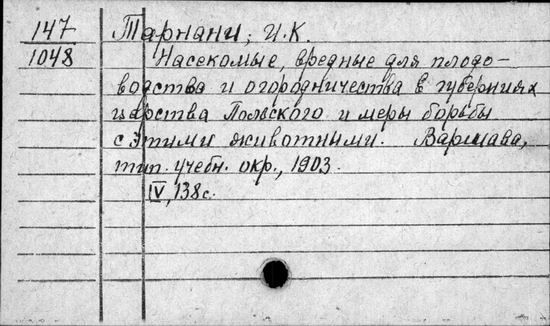 147 Тарнани, И.К.
1048 Насекомые, вредные для плодо-
водства и огородничества в губерниях
царства Польского и меры борьбы
с этими животными. Варшава,
тип. учебн. окр., 1903.
IV, 138 с.